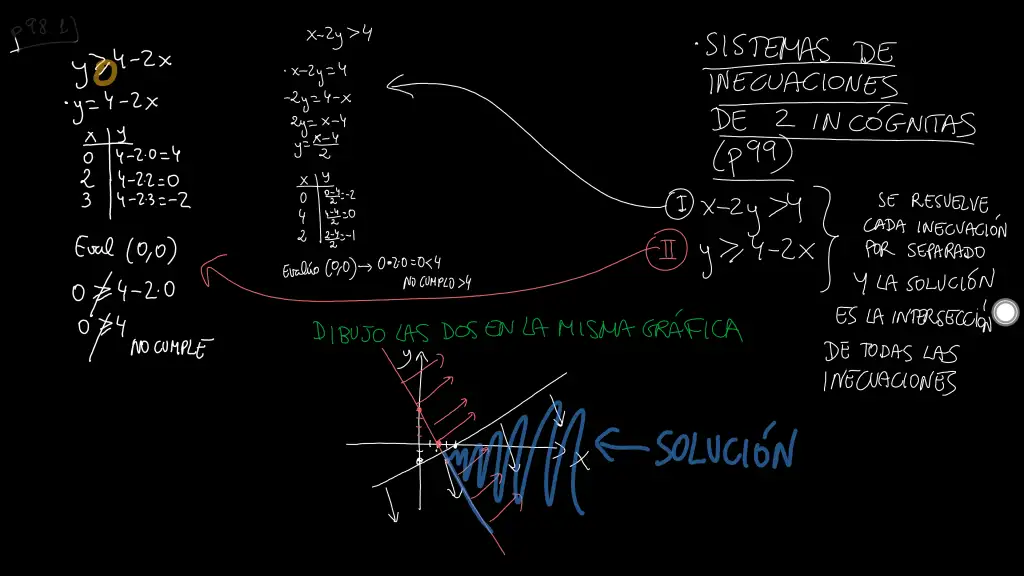 p98 1)
y ≥ 4-2x
· y = 4-2x
x | y
0 | 4-2·0=4
2 | 4-2·2=0
3 | 4-2·3=-2
Eval (0,0)
0 ≱ 4-2·0
0 ≱ 4
NO CUMPLE
x-2y>4
· x-2y=4
-2y=4-x
2y=x-4
y= x-4/2
x | y
0 | 0-4/2=-2
4 | 4-4/2=0
2 | 2-4/2=-1
Evalúo (0,0) → 0-2·0=0<4
NO CUMPLO >4
· SISTEMAS DE
INECUACIONES
DE 2 INCÓGNITAS
(p99)
I x-2y>4
II y ≥ 4-2x
SE RESUELVE
CADA INECUACIÓN
POR SEPARADO
Y LA SOLUCIÓN
ES LA INTERSECCIÓN
DE TODAS LAS
INECUACIONES
DIBUJO LAS DOS EN LA MISMA GRÁFICA
y
x
SOLUCIÓN